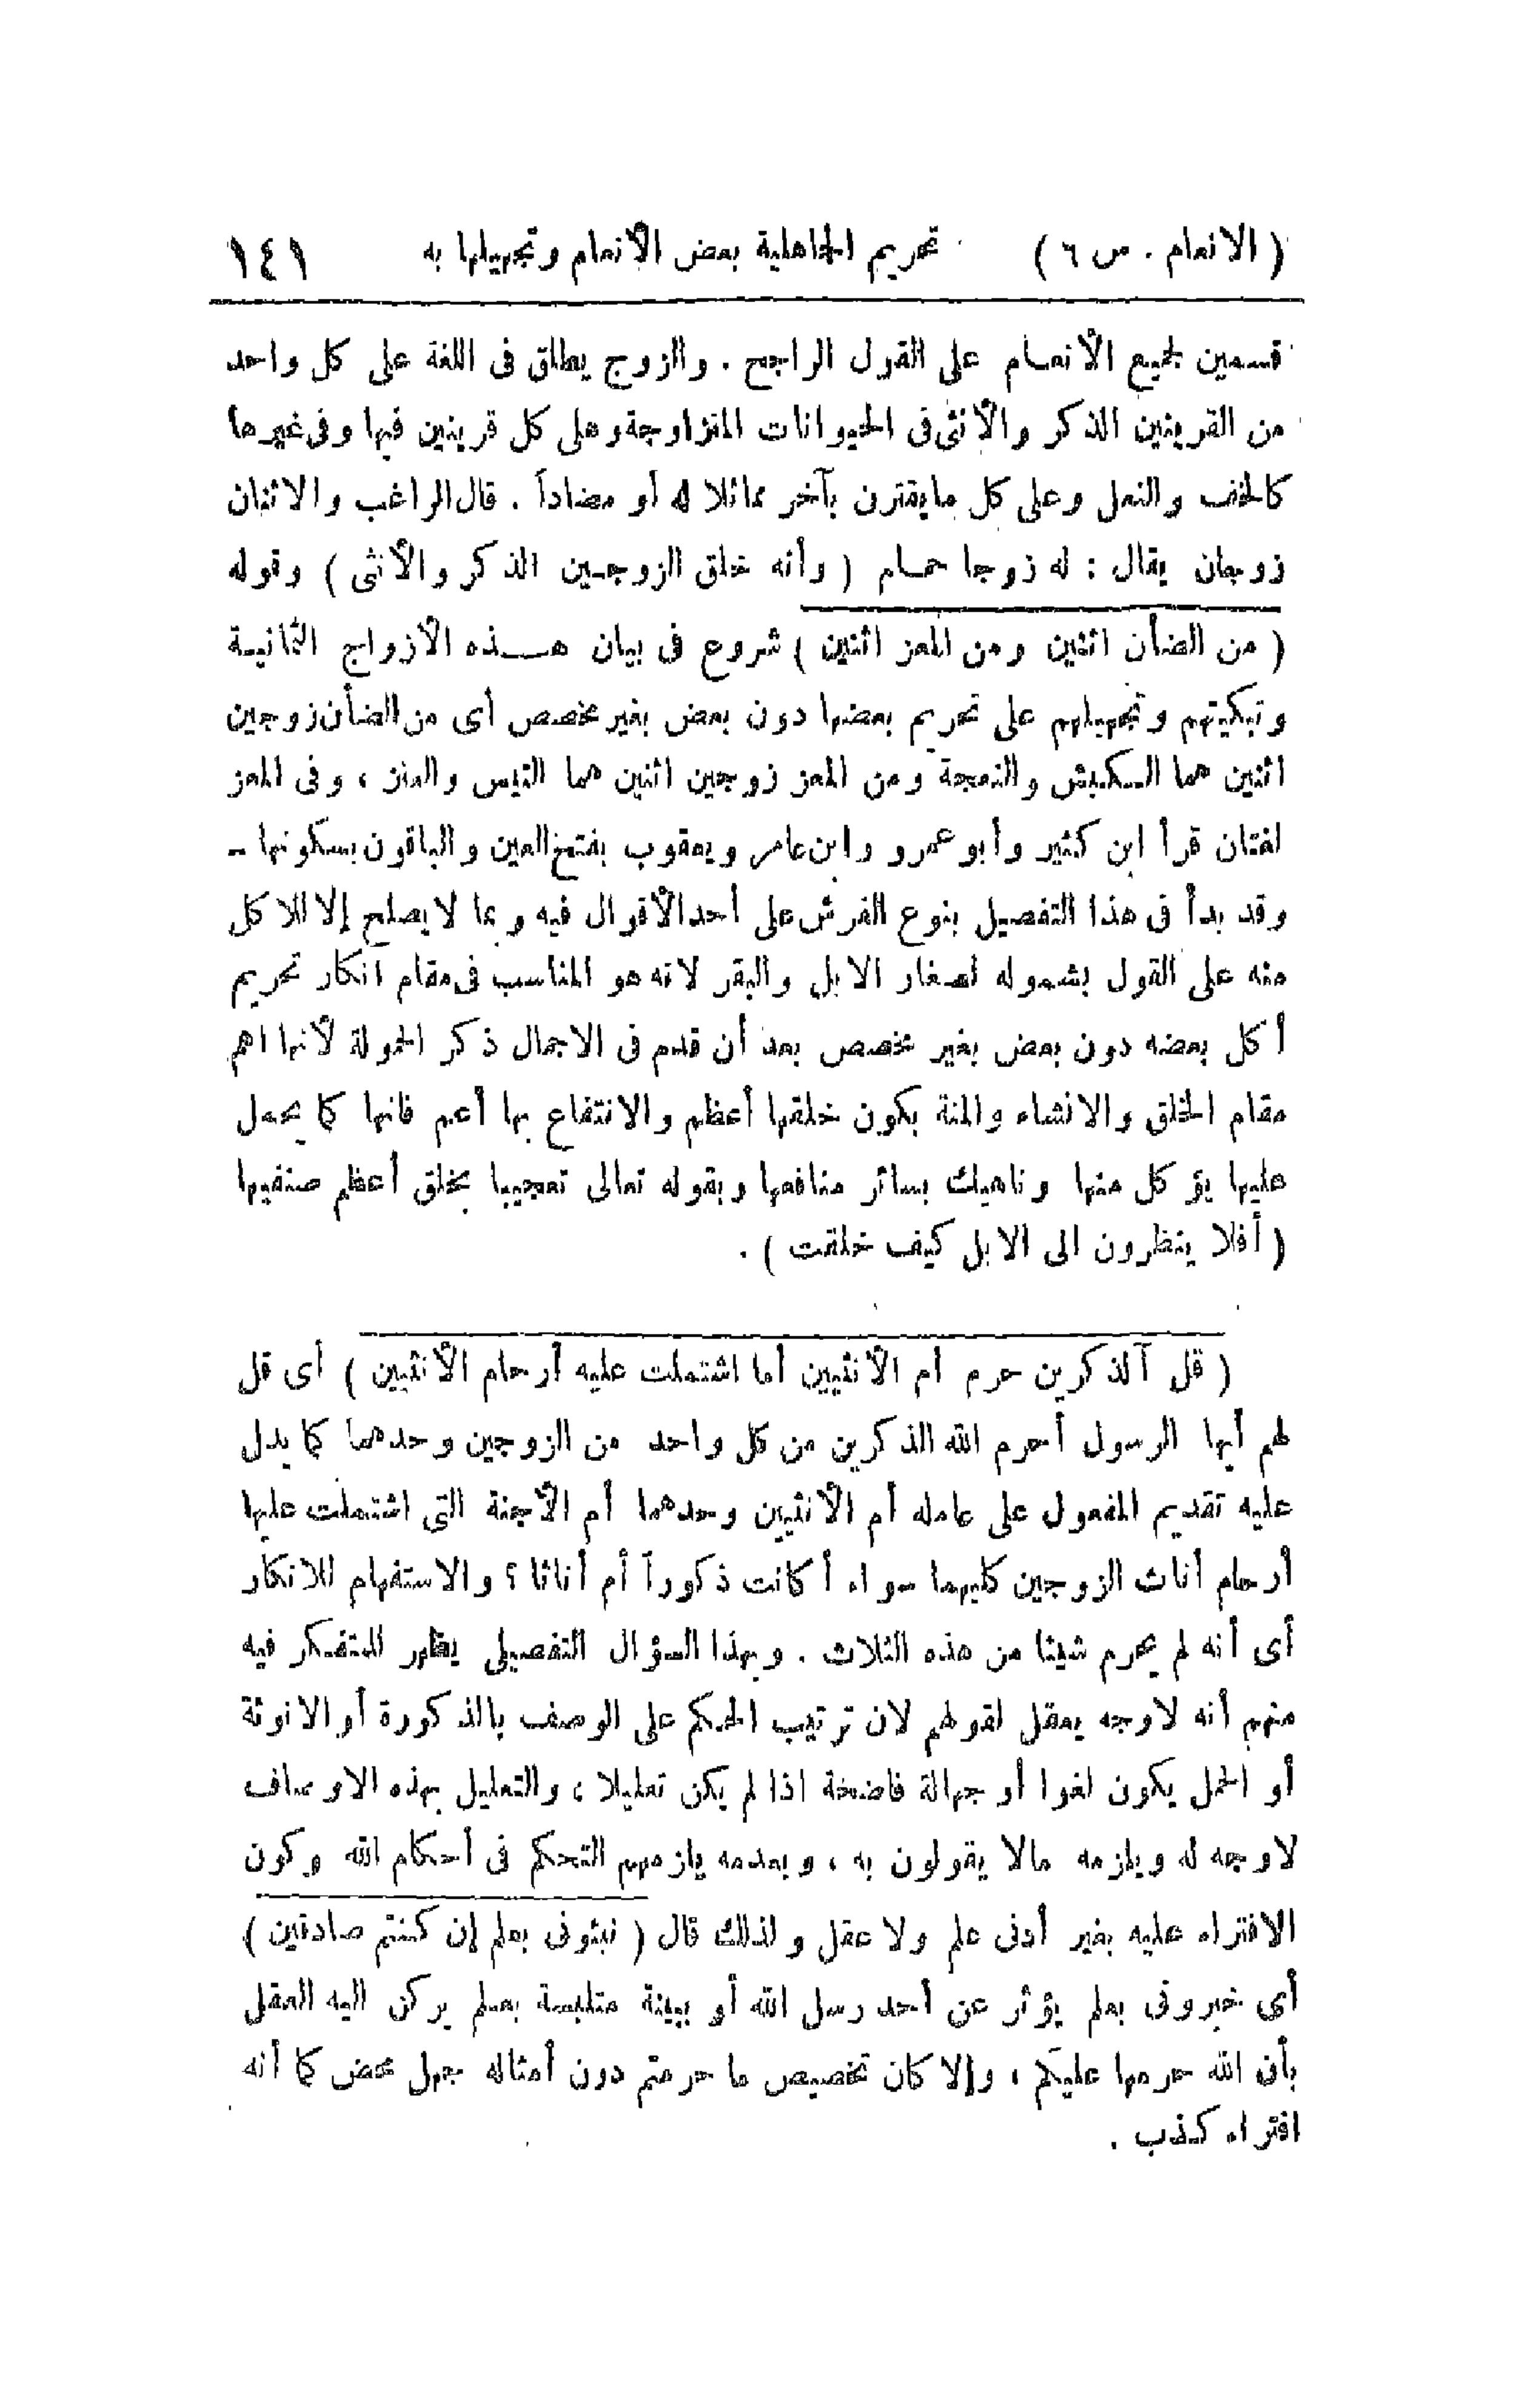 ( الانعام . س ٦ ) تحريم الجاهلية بعض الأنعام وتجهيلها به ١٤١
قسمين لجميع الأنعام على القول الراجح . والزوج يطلق فى اللغة على كل واحد
من القرينين الذكر والأنثى فى الحيوانات المتزاوجة وعلى كل قرينين فيها وفى غيرها
كالخف والنعل وعلى كل ما يقترن بآخر مماثلا له أو مضاداً . قال الراغب والاثنان
زوجان يقال : له زوجا حمام ( وأنه خلق الزوجين الذكر والأنثى ) وقوله
( من الضأن اثنين ومن المعز اثنين ) شروع فى بيان هذه الأزواج الثمانية
وتبكيتهم وتجهيلهم على تحريم بعضها دون بعض بغير مخصص أى من الضأن زوجين
اثنين هما الكبش والنعجة ومن المعز زوجين اثنين هما التيس والعنز ، وفى المعز
لغتان قرأ ابن كثير وأبو عمرو وابن عامر ويعقوب بفتح العين والباقون بسكونها -
وقد بدأ فى هذا التفصيل بنوع الفرش على أحد الأقوال فيه وبما لا يصلح إلا للاكل
منه على القول بشموله لصغار الابل والبقر لانه هو المناسب فى مقام انكار تحريم
أكل بعضه دون بعض بغير مخصص بعد أن قدم فى الاجمال ذكر الحمولة لأنها اهم
مقام الخلق والانشاء والمنة بكون خلقها أعظم والانتفاع بها أعم فانها كما يحمل
عليها يؤكل منها وناهيك بسائر منافعها وبقوله تعالى تعجيبا بخلق أعظم صنفيها
( أفلا ينظرون الى الابل كيف خلقت ) .
( قل آلذكرين حرم أم الأنثيين أما اشتملت عليه أرحام الأنثيين ) أى قل
لهم أيها الرسول أحرم الله الذكرين من كل واحد من الزوجين وحدهما كما يدل
عليه تقديم المفعول على عامله أم الأنثيين وحدهما أم الأجنة التى اشتملت عليها
أرحام أناث الزوجين كليهما سواء أكانت ذكوراً أم أناثا ؟ والاستفهام للانكار
أى أنه لم يحرم شيئا من هذه الثلاث . وبهذا السؤال التفصيلى يظهر للمتفكر فيه
منهم أنه لاوجه يعقل لقولهم لان ترتيب الحكم على الوصف بالذكورة أو الانوثة
أو الحمل يكون لغوا أو جهالة فاضحة اذا لم يكن تعليلا ، والتعليل بهذه الاوصاف
لاوجه له ويلزمه مالا يقولون به ، وبعدمه يلزمهم التحكم فى أحكام الله وكون
الافتراء عليه بغير أدنى علم ولا عقل ولذلك قال ( نبئونى بعلم إن كنتم صادقين )
أى خبرونى بعلم يؤثر عن أحد رسل الله أو ببينة متلبسة بعلم يركن اليه العقل
بأن الله حرمها عليكم ، وإلا كان تخصيص ما حرمتم دون أمثاله جهل محض كما أنه
افتراء كذب .